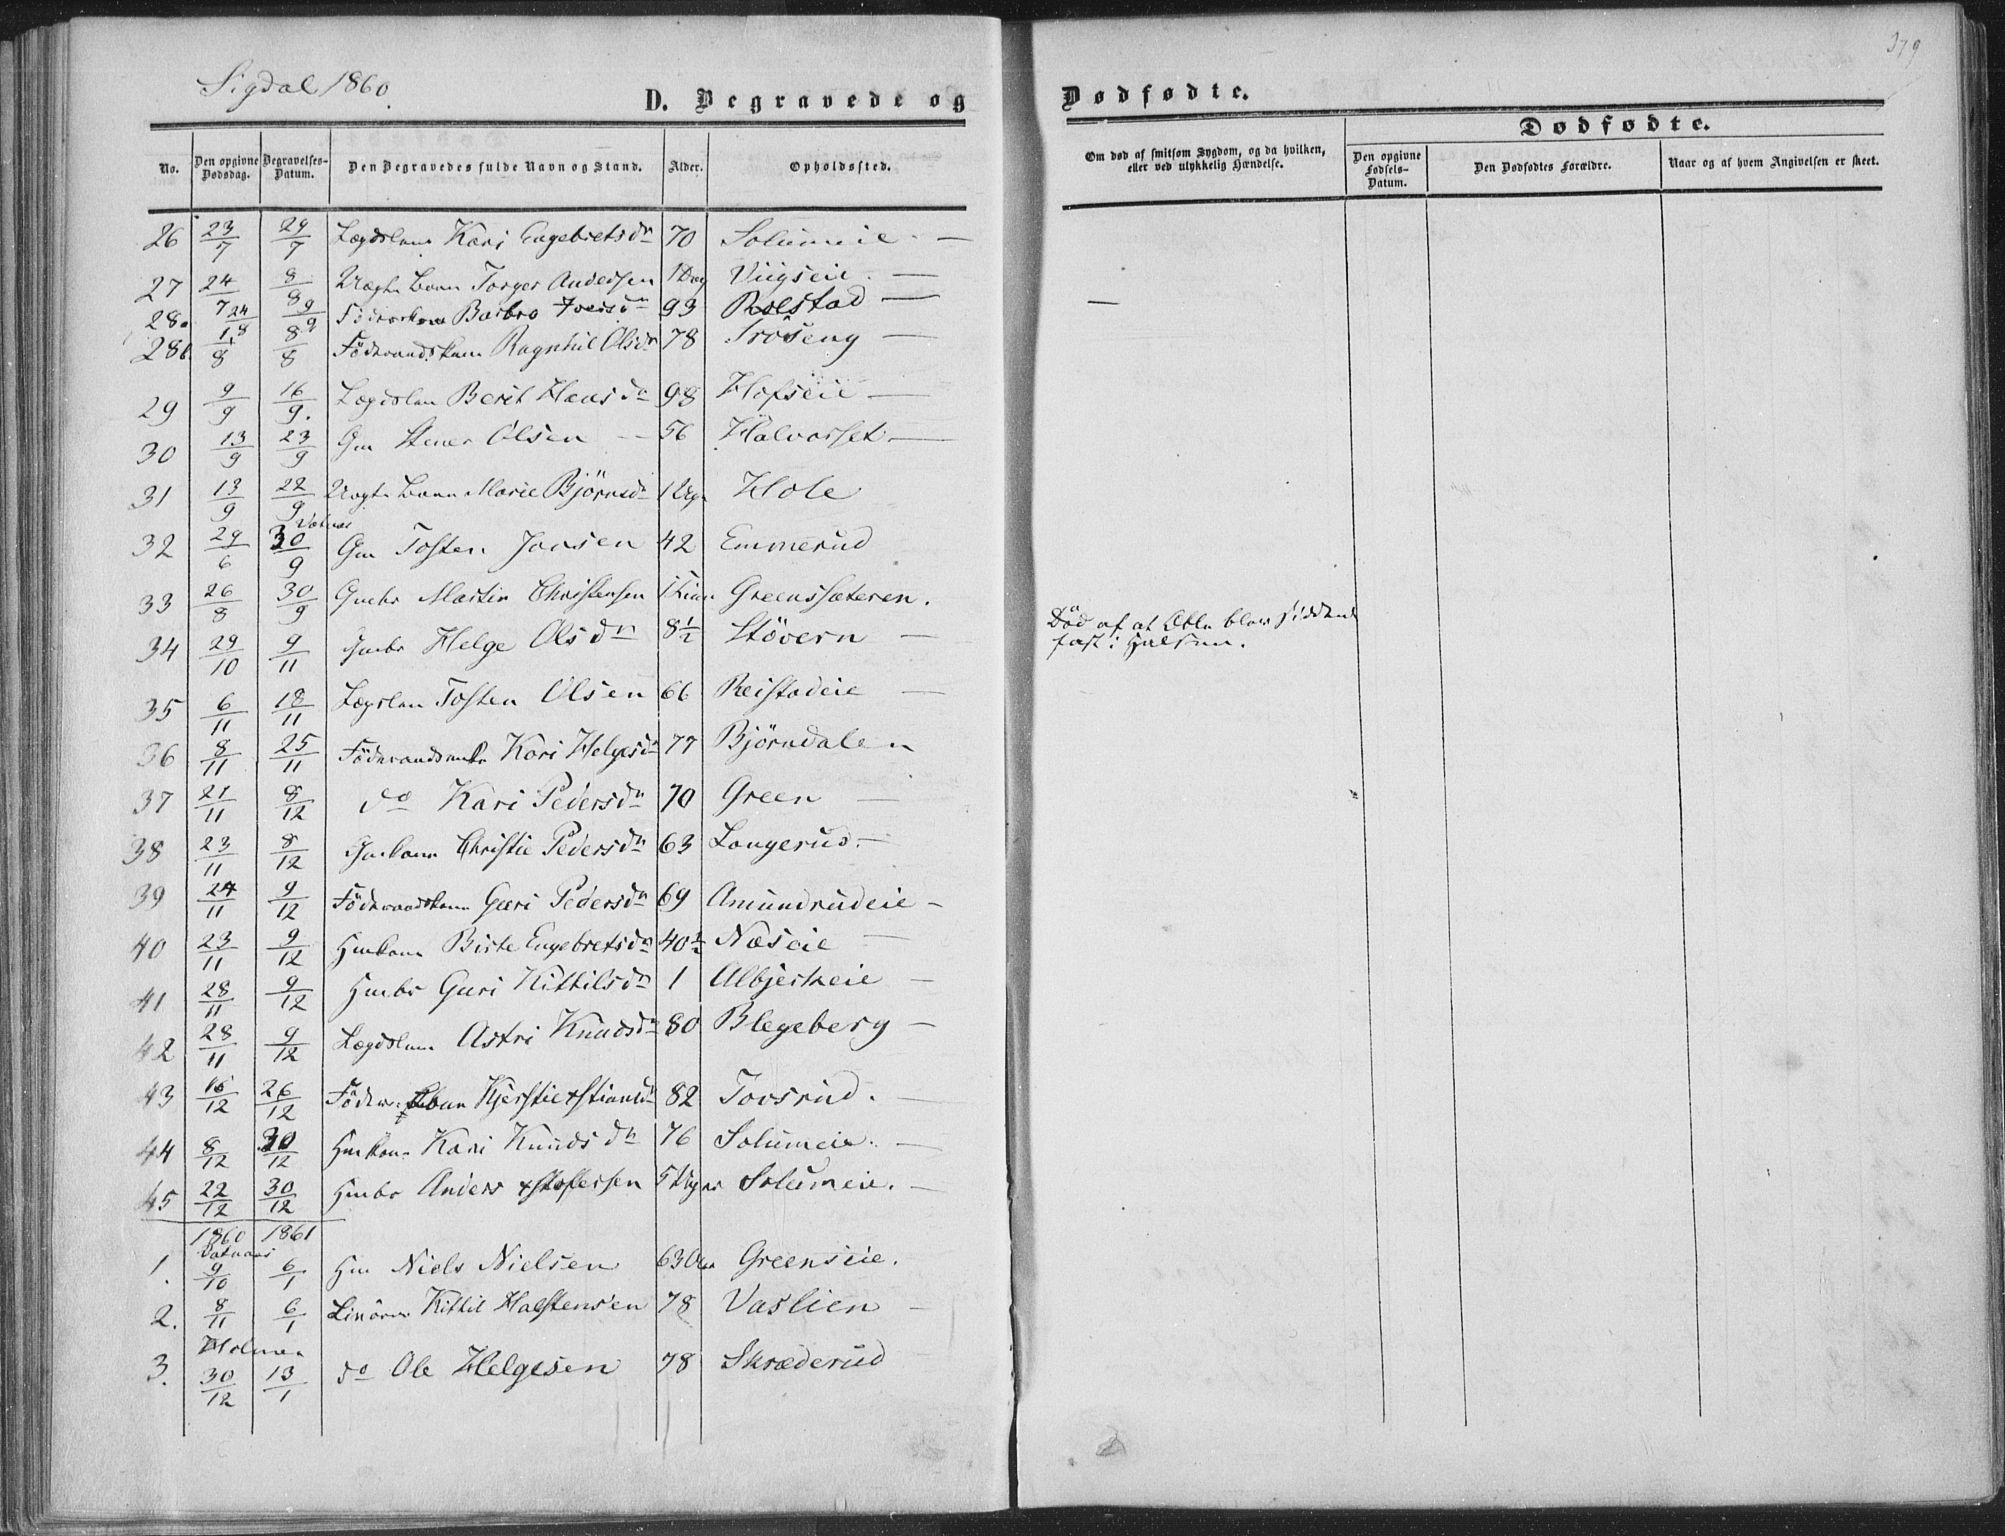 379
Sigdal 1860.
D. Begravede og
Dødfødte.
No.
Den opgivne Dødsdag.
Begravelses-Datum.
Den Begravedes fulde Navn og Stand.
Alder.
Opholdssted.
Om død af smitsom Sygdom, og da hvilken, eller ved ulykkelig Hændelse.
Dødfødte.
Den opgivne Fødsels-Datum.
Den Dødfødtes Forældre.
Naar og af hvem Angivelsen er skeet.
26 23/7 29/7 Lægdslem Kari Engebretsdr 70 Solumeie —
27 24/7 8/8 Uægte Barn Torger Andersen 1 Dag Viigseie —
28a 24/8 9/9 Barbro Iversdr 93 Rolstad — —
28b 1/8 8/8 Föderaadskone Ragnhil Olsdr 78 Tröseng —
29 9/9 16/9. Lægdslem Berit Hansdr 98 Hofseie —
30 13/9 23/9 Gm Stener Olsen — 56 Halvorset —
31 13/9 22/9 Uægte Barn Marie Björnsdr 1 Hole
32 29/6 30/9 Gm Tosten Jonsen 42 Emmerud
33 26/8 30/9 Gmbr Martin Christensen 1 Time Greenssæteren.
34 29/10 9/11 Gmbr Helge Olsdr 8½ Stövern —
Död af at blev siddende
fast i Halsen.
35 6/11 18/11 Lægslem Tosten Olsen 66 Reistadeie —
36 8/11 25/11 Kari Helgesdr 77 Björndalen
37 21/11 8/12 do Kari Pedersdr 70 Green —
38 23/11 8/12 Gmkone Christie Pedersdr 63 Langerud. —
39 24/11 9/12 Föderaadskone Guri Pedersdr 69 Amundrudeie —
40 23/11 9/12 Hmkone Birte Engebretsdr 40½ Næseie —
41 28/11 9/12 Hmbr Guri Kittilsdr 1 Albjerkeie —
42 28/11 9/12 Lægdslem Astri Knudsdr 80 Blegeberg —
43 16/12 26/12 Kjerstie 82 Tovsrud. —
44 8/12 30/12 Hmkone Kari Knudsdr 76 Solumeie. —
45 22/12 30/12 Hmbr Anders xstofersen 5 Solumeie. —
1860 1861
Vatnaas
1. 9/10 6/1 Hm Niels Nielsen 63 Greenseie.
2. 8/11 6/1 Kittil Halstensen 78 Vaslien —
Holmen
3. 30/12 13/1 do Ole Helgesen 78 Skræderud